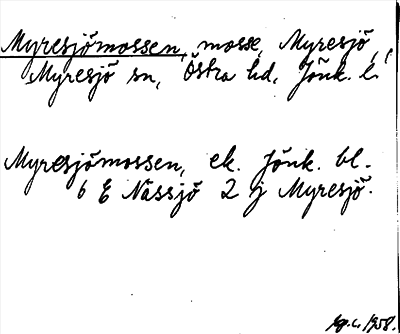 Myresjömossen, mosse, Myresjö,
Myresjö sn, Östra hd, Jönk. l.
Myresjömossen, ek. Jönk. bl.
6 E Nässjö 2 j Myresjö.
1958.